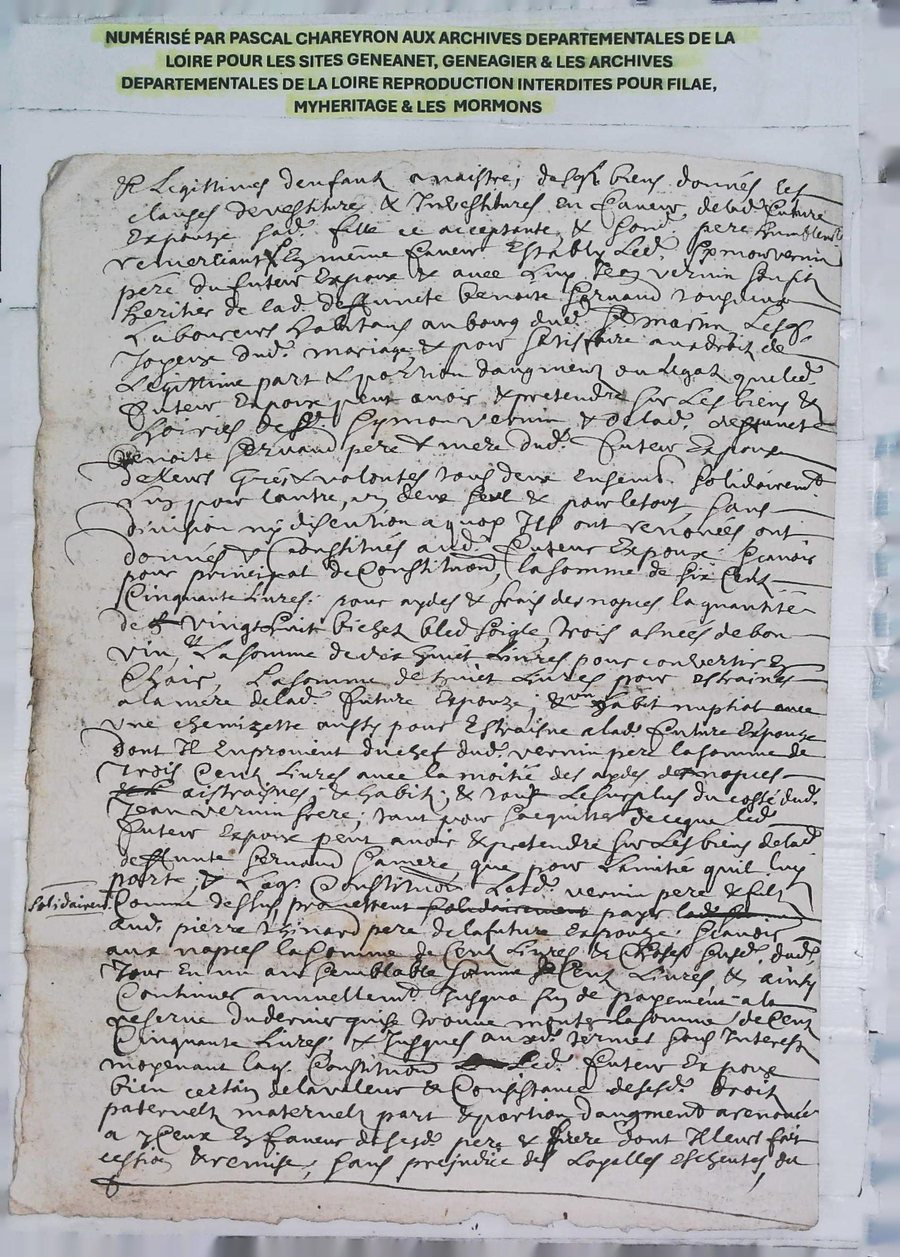 NUMÉRISÉ PAR PASCAL CHAREYRON AUX ARCHIVES DEPARTEMENTALES DE LA
LOIRE POUR LES SITES GENEANET, GENEAGIER & LES ARCHIVES
DEPARTEMENTALES DE LA LOIRE REPRODUCTION INTERDITES POUR FILAE,
MYHERITAGE & LES MORMONS
& Legittimes denfantz a naistre, desqs biens donnés les
clauses devestiture & Investitures en faveur delad. future
Expouze sad. fille ce acceptante & sond. pere humblemt
remerciant, Et méme faveur Establÿ Led. Sÿmon vernin
pere du futeur Expoux & avec luÿ Jean vernin son filz
heritier de lad. deffuncte benoite
Laboureurs habitans au bourg dud. St martin, Lesqs
Joÿeux dud. mariage & pour satisfaire aux droit de
Legittime part & portion daugment ou legat que led.
futeur Expoux peut avoir & pretendre sur Les biens &
hoiries desd. Sÿmon vernin & delad. deffuncte
benoite pere & mere dud. futeur Expoux
de leurs Grés & volontes tous deux ensemb. solidairemt
Lun pour lautre, un deux seul & pour le tout sans
division nÿ discution a quoÿ Ilz ont renoncés ont
donnés & Constitués aud. futeur Expoux: scavoir
pour principal de Constituon, la somme de six Centz
Cinquante livres; pour aÿdes & frais des nopces la quantité
de vingt huit bichetz bled soigle, trois asnées de bon
vin, & La somme de dix huict Livres pour convertir En
Chair, La somme de huict Livres pour estraines
a la mere delad. future Expouze; & un habit nuptial avec
une chemizette aussÿ pour Estraisne a lad. future Expouze
dont Il En provient du chef dud. vernin pere la somme de
trois Cent Livres avec la moitié des aÿdes de nopces
aistraisnes, & habit; & tout Le surplus du costé dud.
Jean vernin frere; tant pour sacquitter de ce que led.
futeur Expoux peut avoir & pretendre sur Les biens delad.
deffunte sa mere, que pour Lamitié quil luÿ
porte, & Laqe Constituon Lesd. vernin pere & filz
solidairemt
Comme dessus promettent solidairement paÿer
aud. pierre pere de la future Expouze; scavoir
aux nopces la somme de Cent Livres & Choses susd. dud.
Jour En un an semblable somme de Cent Livres, & ainsÿ
Continuer annuellemt Jusqua fin de paÿement a la
reserve du dernier qui se trouve monter la somme de Cent
Cinquante Livres; & Jusques auxd. termes sans Interest
moÿenant laqe Constituon Led. futeur Expoux
bien certain de la valeur & Consistance de sesd. droit
paternelz maternelz part & portion daugment a renoncé
a ÿceux En faveur de sesd. pere & frere dont Il leurs fait
cession & remise, sans prejudice des Loÿalles Escheutes, du